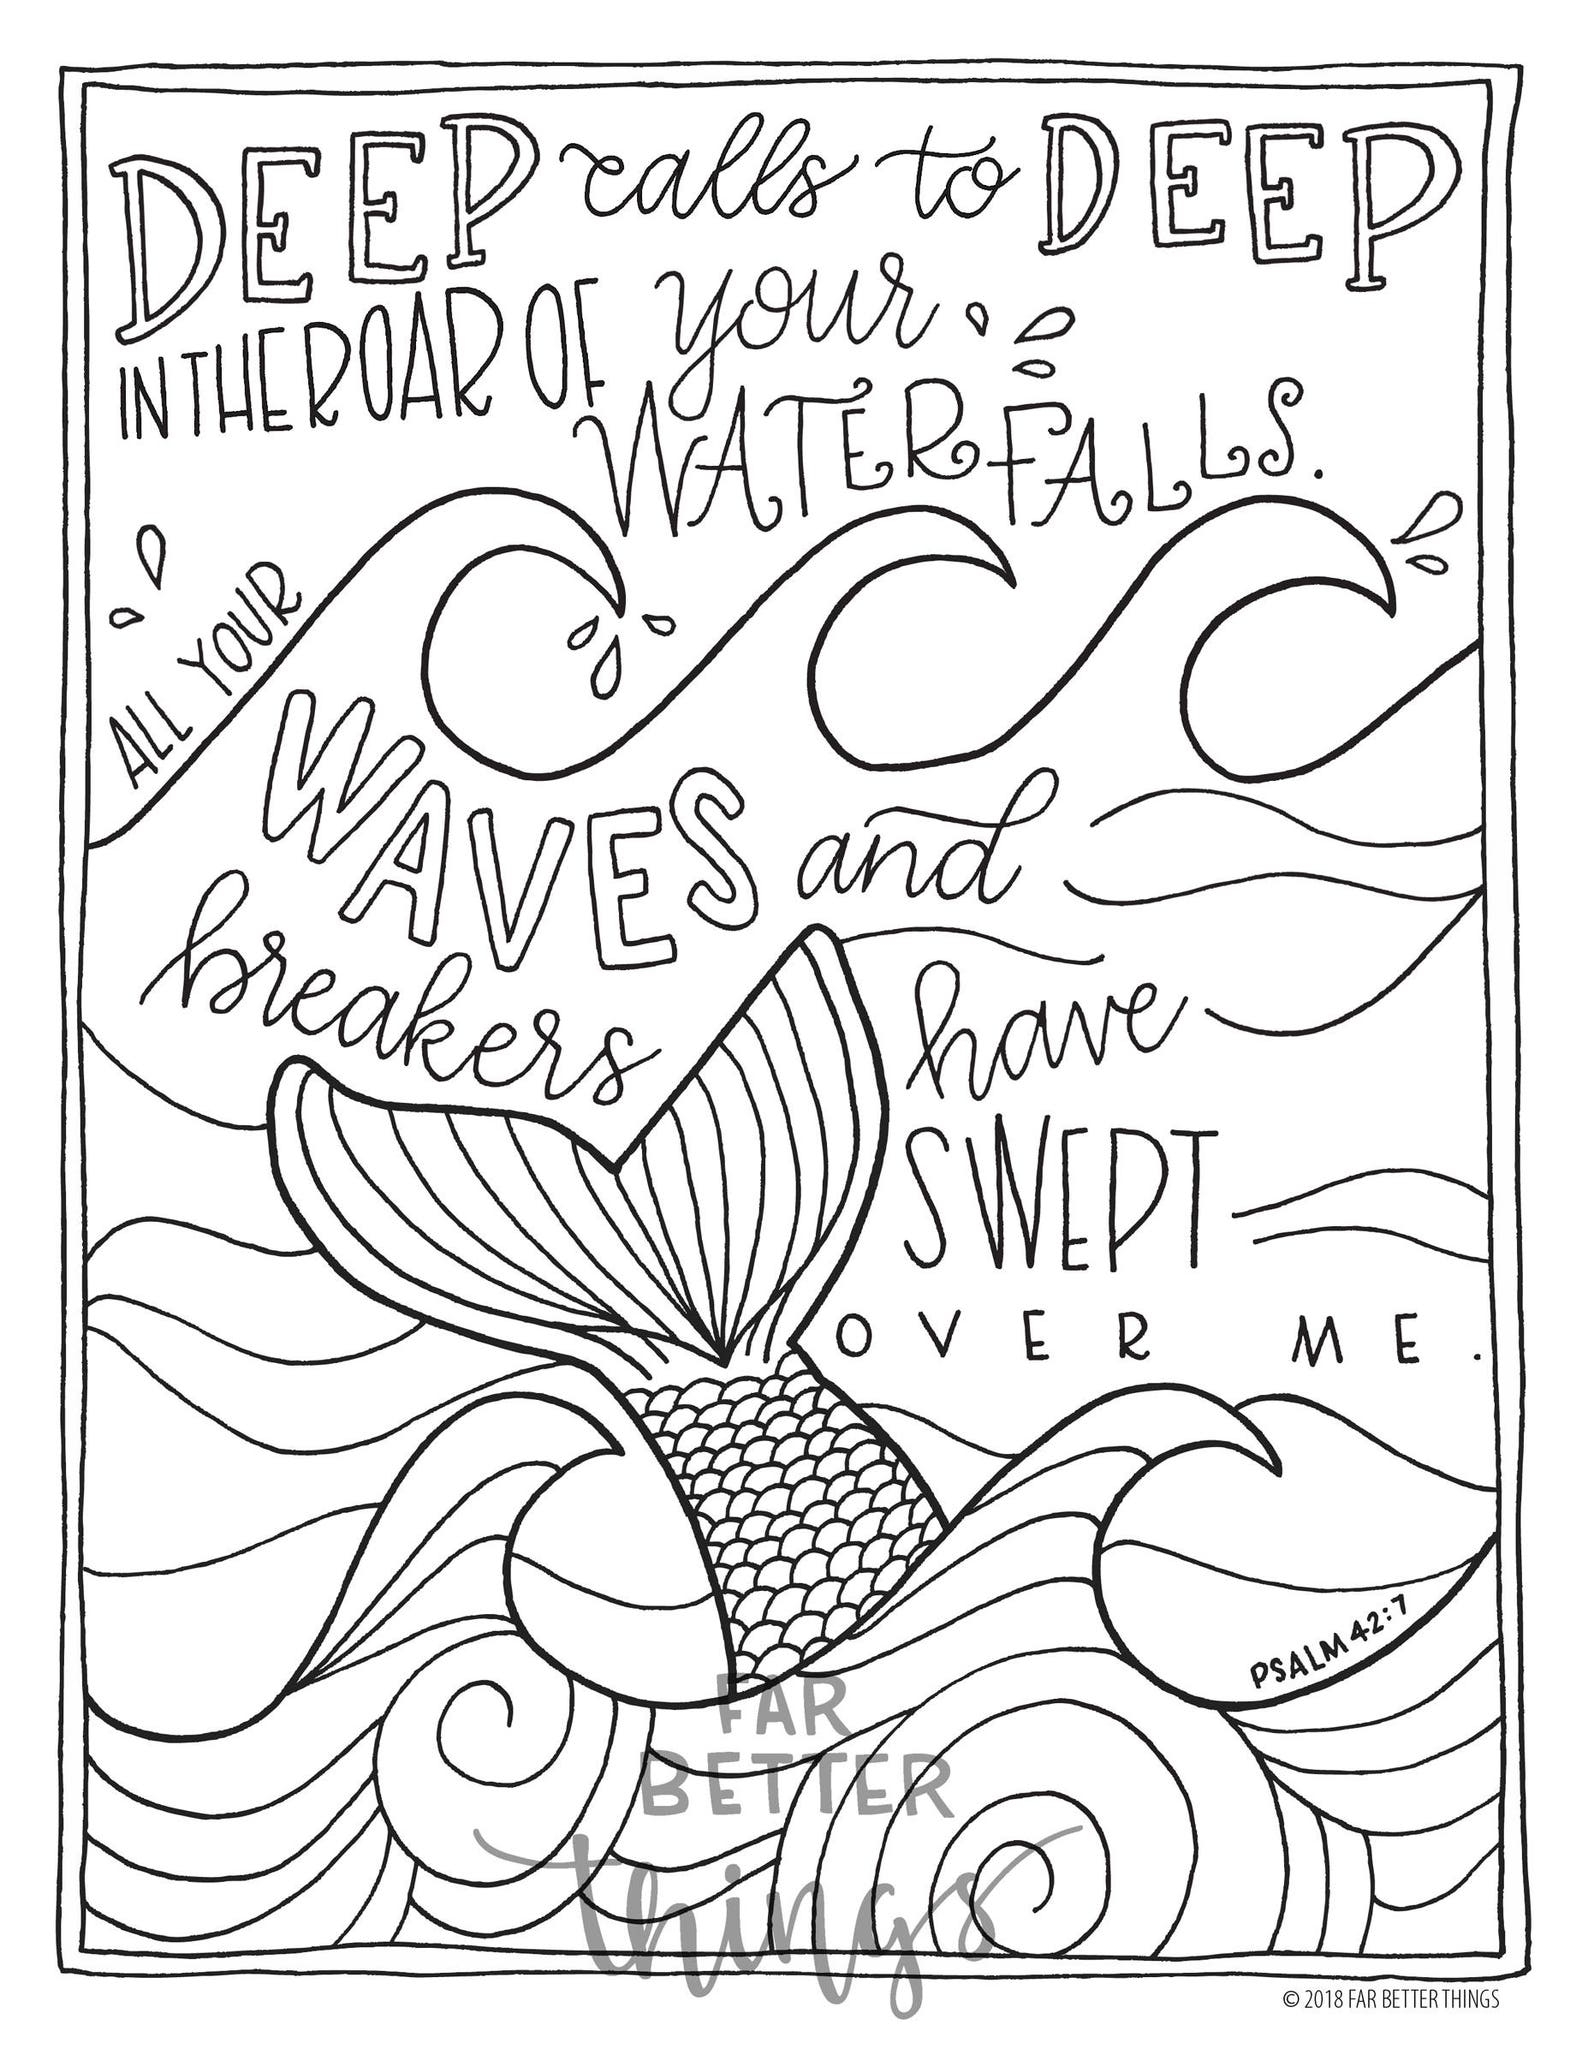 DEEP calls to DEEP
IN THE ROAR OF your
WATERFALLS.
ALL YOUR
WAVES and
breakers have
SWEPT
OVER ME.
PSALM 42:7
FAR
BETTER
things
© 2018 FAR BETTER THINGS